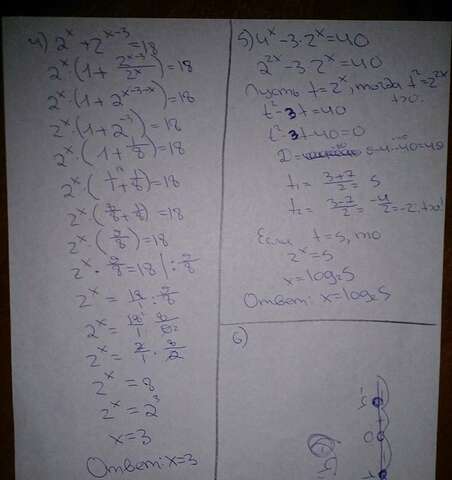 4) 2^x + 2^(x-3) = 18
2^x · (1 + 2^(x-3)/2^x) = 18
2^x · (1 + 2^(x-3-x)) = 18
2^x · (1 + 2^(-3)) = 18
2^x · (1 + 1/8) = 18
2^x · (1/1 + 1/8) = 18
2^x · (8/8 + 1/8) = 18
2^x · (9/8) = 18
2^x · 9/8 = 18 | : 9/8
2^x = 18/1 : 9/8
2^x = 18/1 · 8/9
2^x = 2/1 · 8/2
2^x = 8
2^x = 2^3
x = 3
Ответ: x = 3
5) 4^x - 3 · 2^x = 40
2^(2x) - 3 · 2^x = 40
Пусть t = 2^x, тогда t^2 = 2^(2x)
t>0
t^2 - 3t = 40
t^2 - 3t - 40 = 0
D =
t₁ = (3+7)/2 = 5
t₂ = (3-7)/2 = -4/2 = -2
Если t = 5, то
2^x = 5
x = log₂5
Ответ: x = log₂5
6)